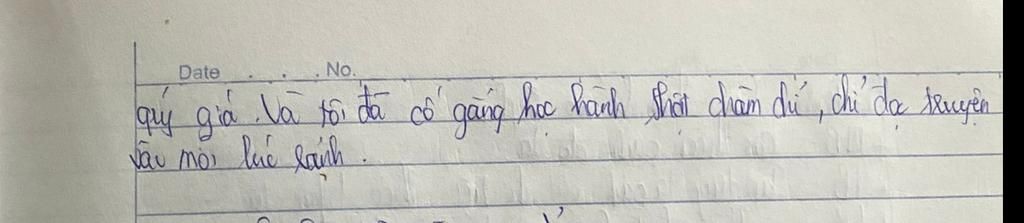 Date . . . No.
quý giá. Và tôi đã cố gắng học hành thật chăm chỉ, chỉ đọc truyện
vào mỗi lúc rảnh.